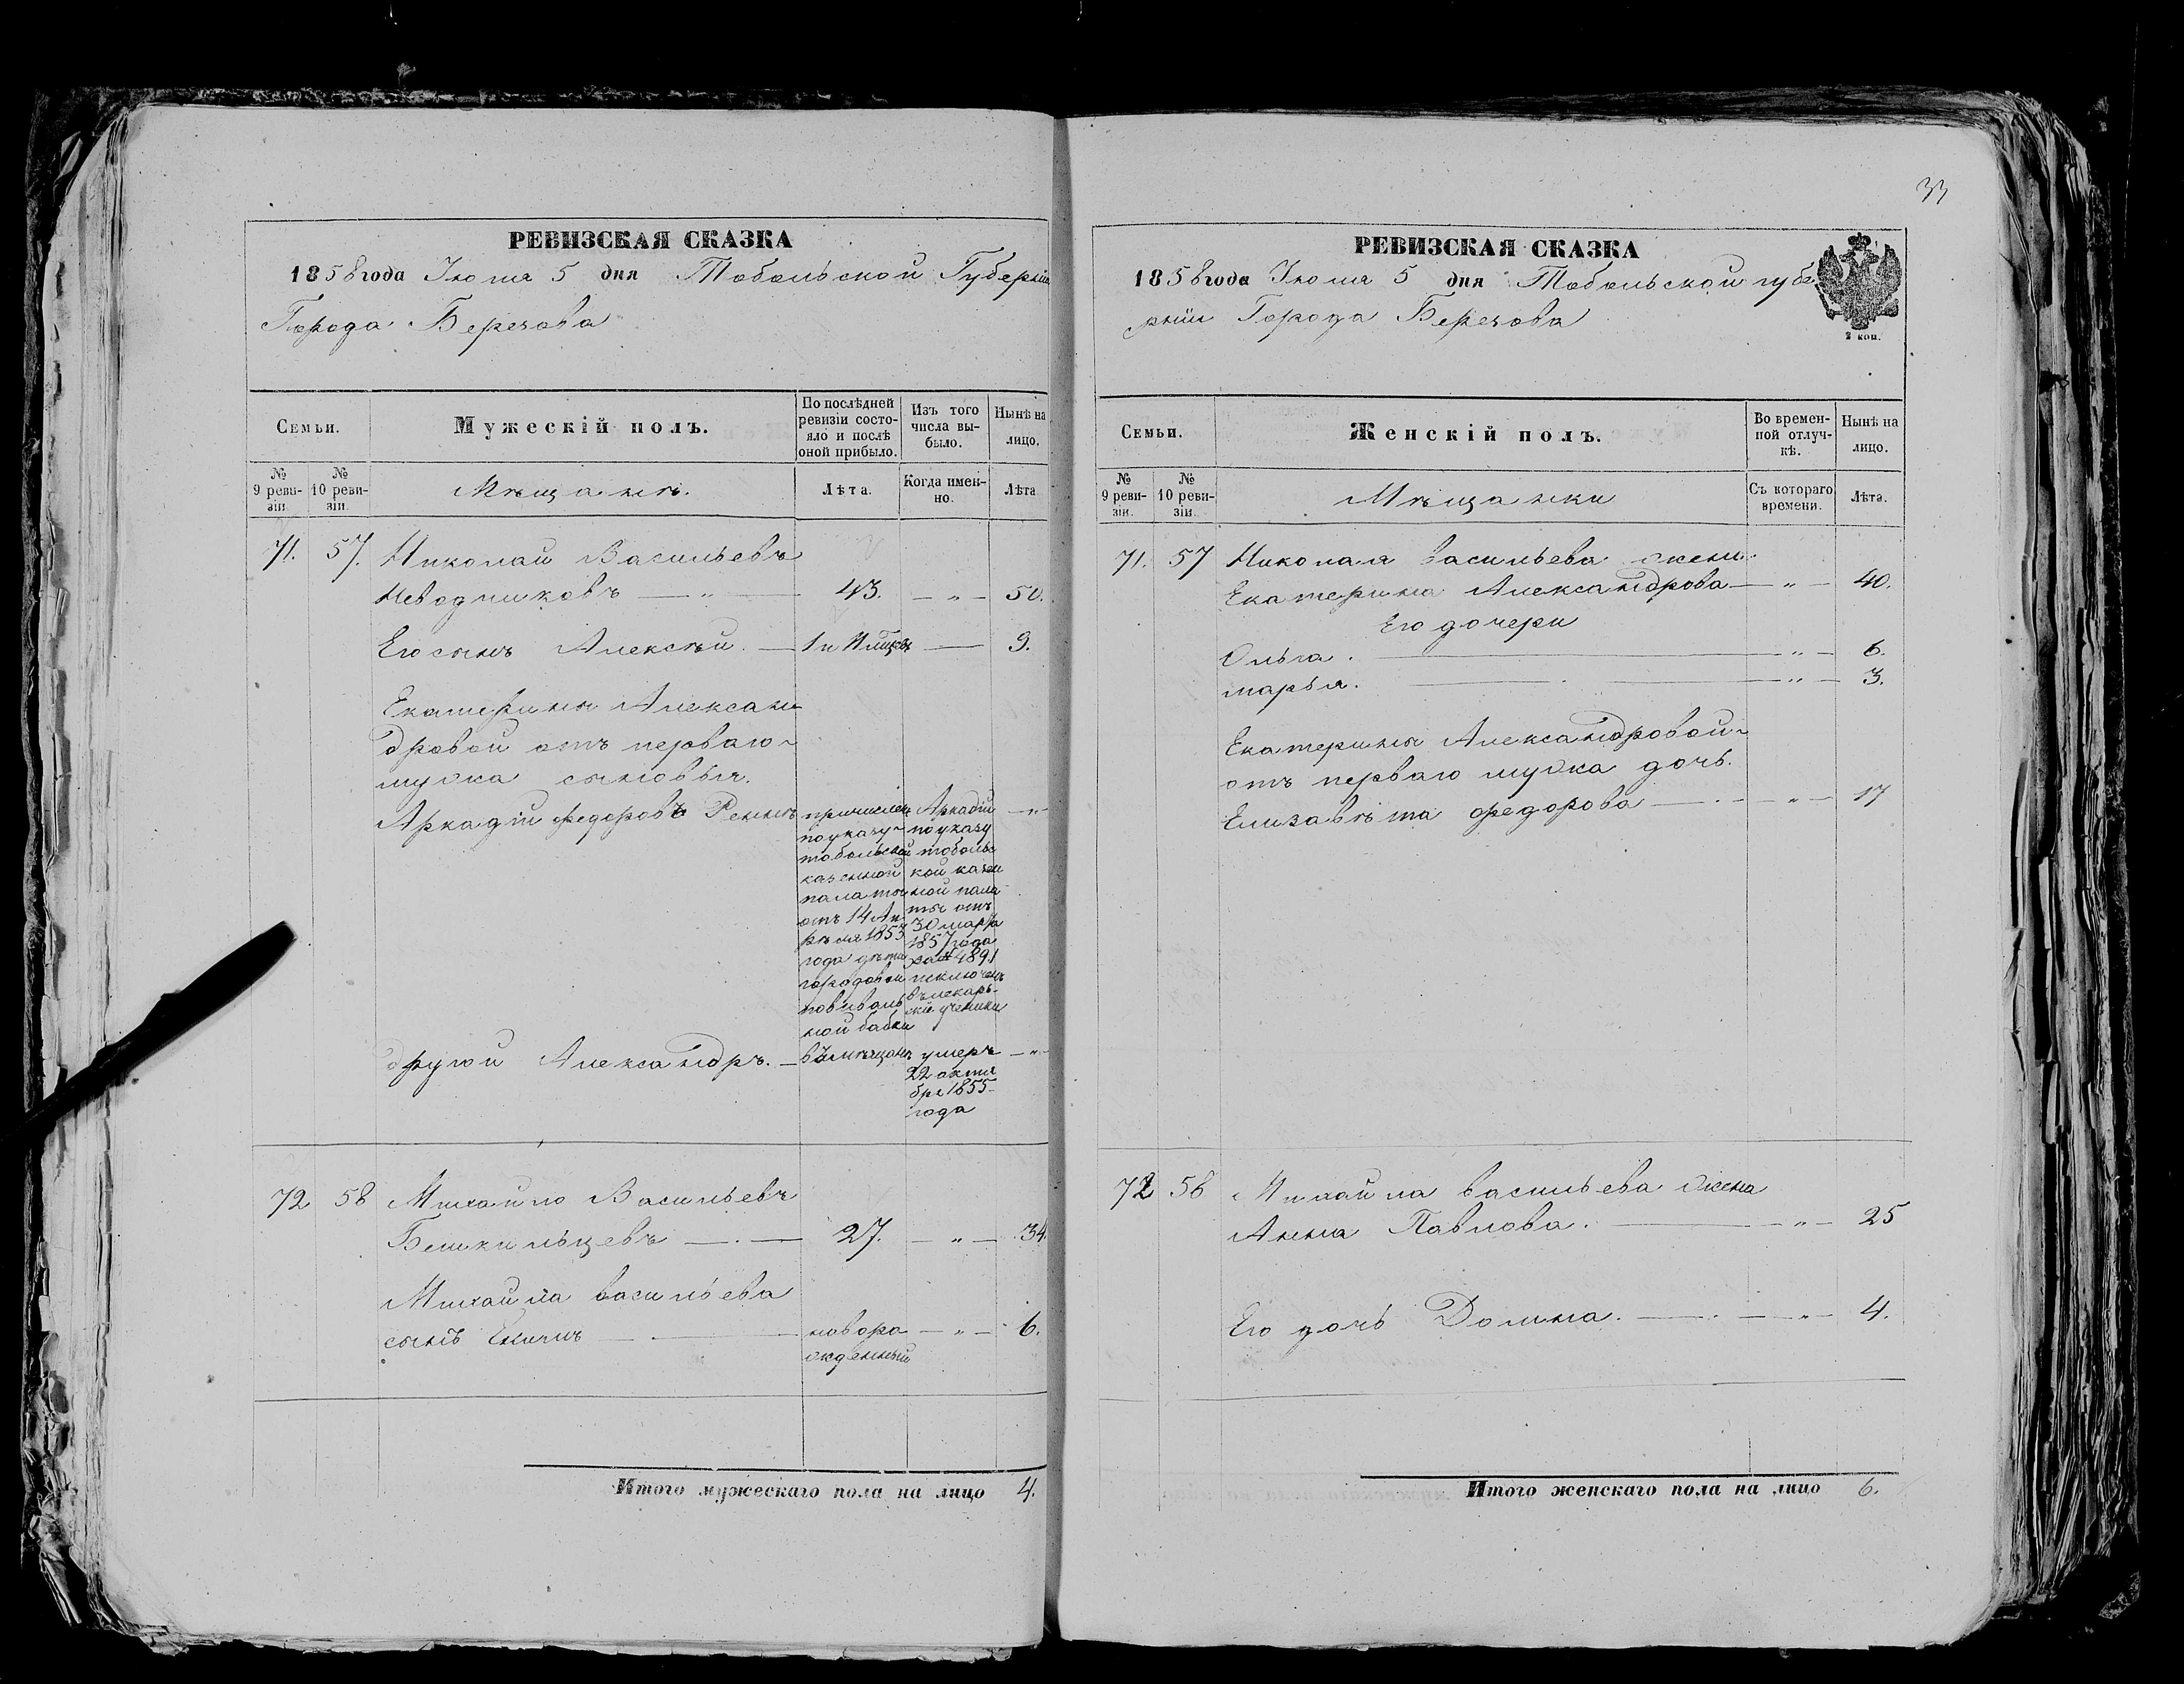 33
РЕВИЗСКАЯ СКАЗКА
1858 года Іюня 5 дня Тобольской Губерніи
Города Березова
Семьи.
Мужескій полъ.
По послѣдней ревизіи состояло и послѣ оной прибыло.
Изъ того числа выбыло.
Нынѣ на лицо.
№ 9 ревизіи.
№ 10 ревизіи.
Мѣщане.
Лѣта.
Когда именно.
Лѣта
71. 57. Николай Васильевъ
Неводчиковъ — „ — 43. — „ — 50.
Его сынъ Алексѣй. — 1 и — 9.
Екатерины Алексан
дровой отъ перваго
мужа сыновья.
Аркадій Федоровъ
причисленъ
по указу
тобольской
казенной
палаты
отъ 14 Ап
рѣля 1853
года дѣти
городовой
повиваль
ной бабки
Аркадій
по указу
тоболь
кой казен
ной пала
ты отъ
30 марта
1857 года
за № 4891
исключенъ
въ лекарь
скіе ученики
— „
другой Александръ. — въ мѣщане
умеръ — „ —
22 октя
бря 1855
года
72 58 Михайло Васильевъ
Бешкильцевъ — . — 27. — „ — 34.
Михайла васильева
сынъ — . — новоро — „ — 6.
жденный
Итого мужескаго пола на лицо 4.
РЕВИЗСКАЯ СКАЗКА
1858 года Іюня 5 дня Тобольской губе
рніи Города Березова
2 коп.
Семьи.
Женскій полъ.
Во временной отлучкѣ.
Нынѣ на лицо.
№ 9 ревизіи.
№ 10 ревизіи.
Мѣщанки
Съ котораго времени.
Лѣта.
71. 57 Николая васильева жена
Екатерина Александрова — „ — 40.
Его дочери
Ольга. — „ — 6.
марья. — „ — 3.
Екатерины Александровой
отъ перваго мужа дочь.
Елизавѣта федорова — . — „ — 17
72 58 Михайла васильева жена
Анна Павлова. — „ — 25
Его дочь Домна. — . — „ — 4.
Итого женскаго пола на лицо 6.